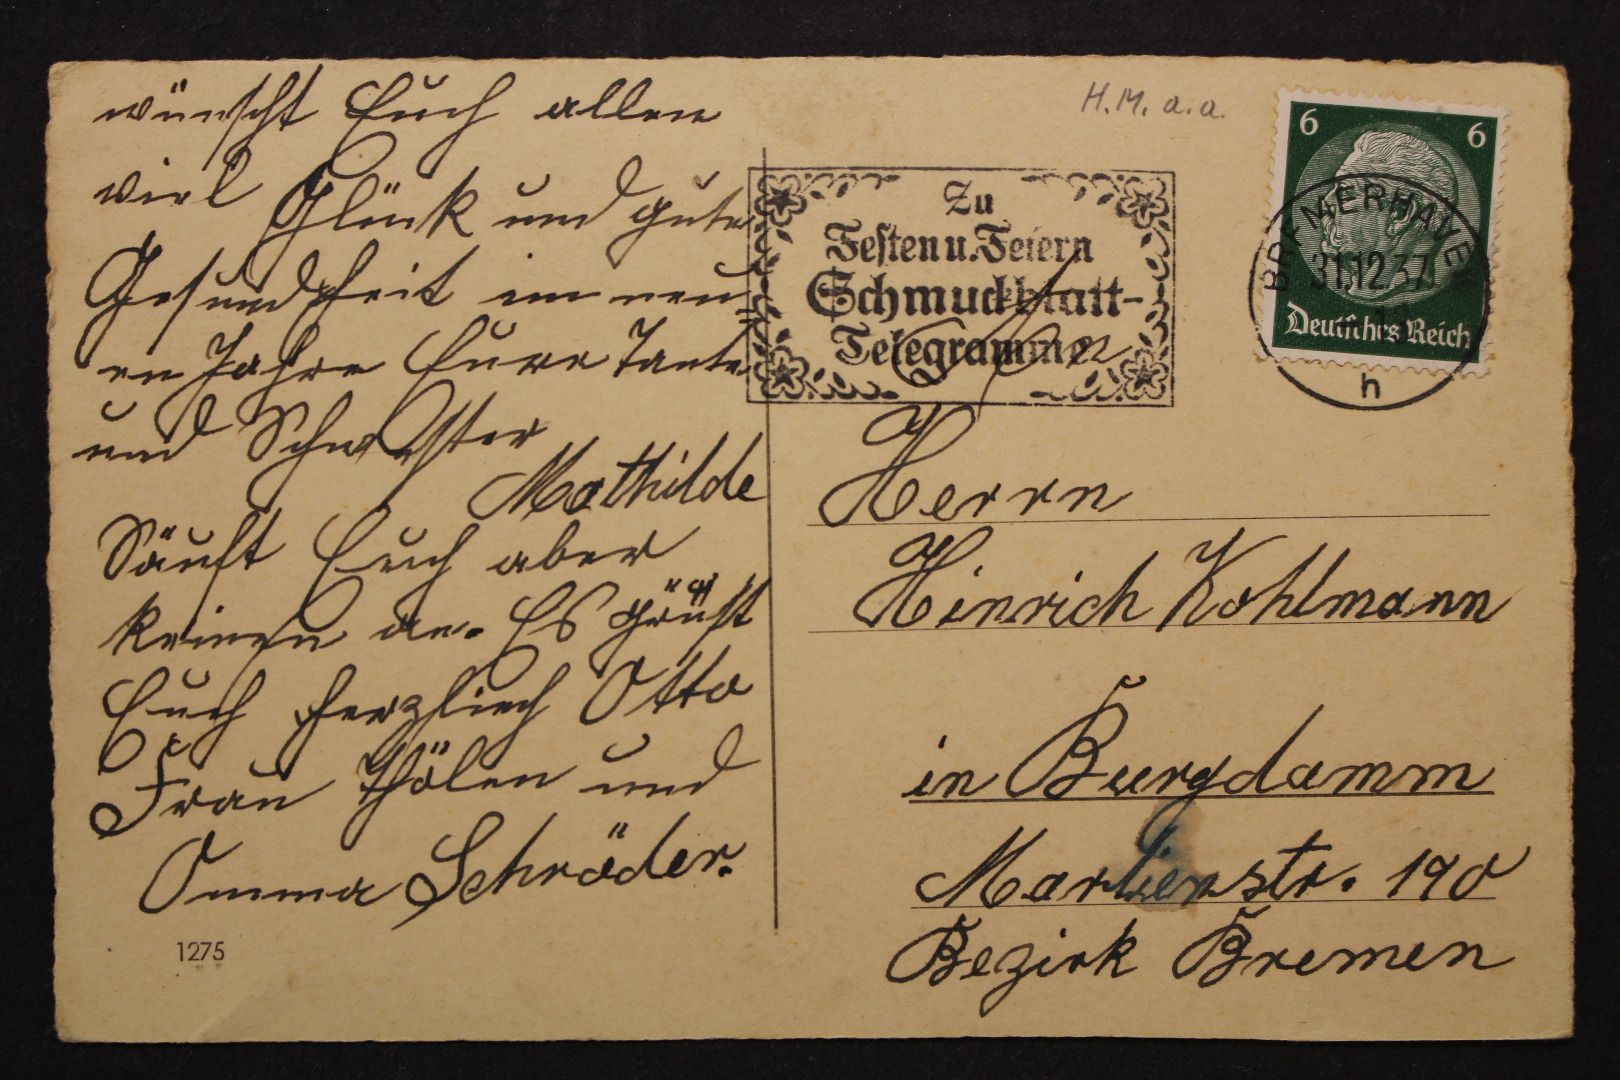 wünscht Euch allen
viel Glück und gute
Gesundheit im neu=
en Jahre Eure Tante
und Schwester
Mathilde
Säuft Euch aber
keinen an. Es grüßt
Euch herzlich Otto
Frau Thölen und
Omma Schröder.
1275
H.M. a.a.
Zu
Festen u. Feiern
Schmuckblatt-
Telegramme
6 6
Deutsches Reich
BREMERHAVEN
31.12.37
h
An
Herrn
Hinrich Kohlmann
in Burgdamm
str. 190
Bezirk Bremen